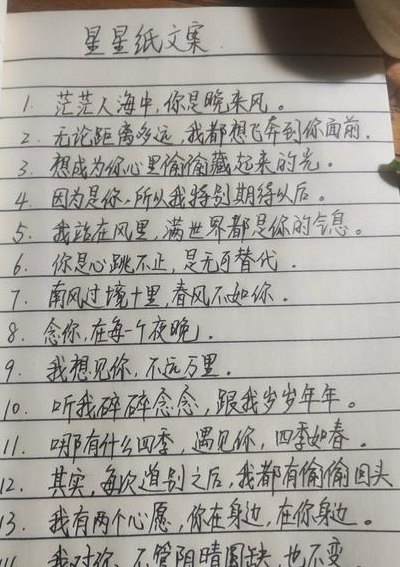 星星纸文案.
1. 茫茫人海中,你是晚来风。
2. 无论距离多远,我都想飞奔到你面前.
3. 想成为你心里偷偷藏起来的光。
4. 因为是你,所以我特别期待以后。
5. 我站在风里,满世界都是你的气息。
6. 你是心跳不止,是无可替代.
7. 南风过境十里,春风不如你.
8. 念你,在每一个夜晚.
9. 我想见你,不远万里.
10. 听我碎碎念念,跟我岁岁年年。
11. 哪有什么四季,遇见你,四季如春。
12. 其实,每次道别之后,我都有偷偷回头
13. 我有两个心愿,你在身边,在你身边。
我对你,不管阴晴圆缺,也不变